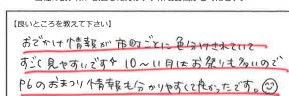 【良いところを教えて下さい】
おでかけ情報が市町ごとに色分けされていて
すごく見やすいです。10〜11月はお祭りも多いので
P6のおまつり情報も分かりやすくて良かったです。